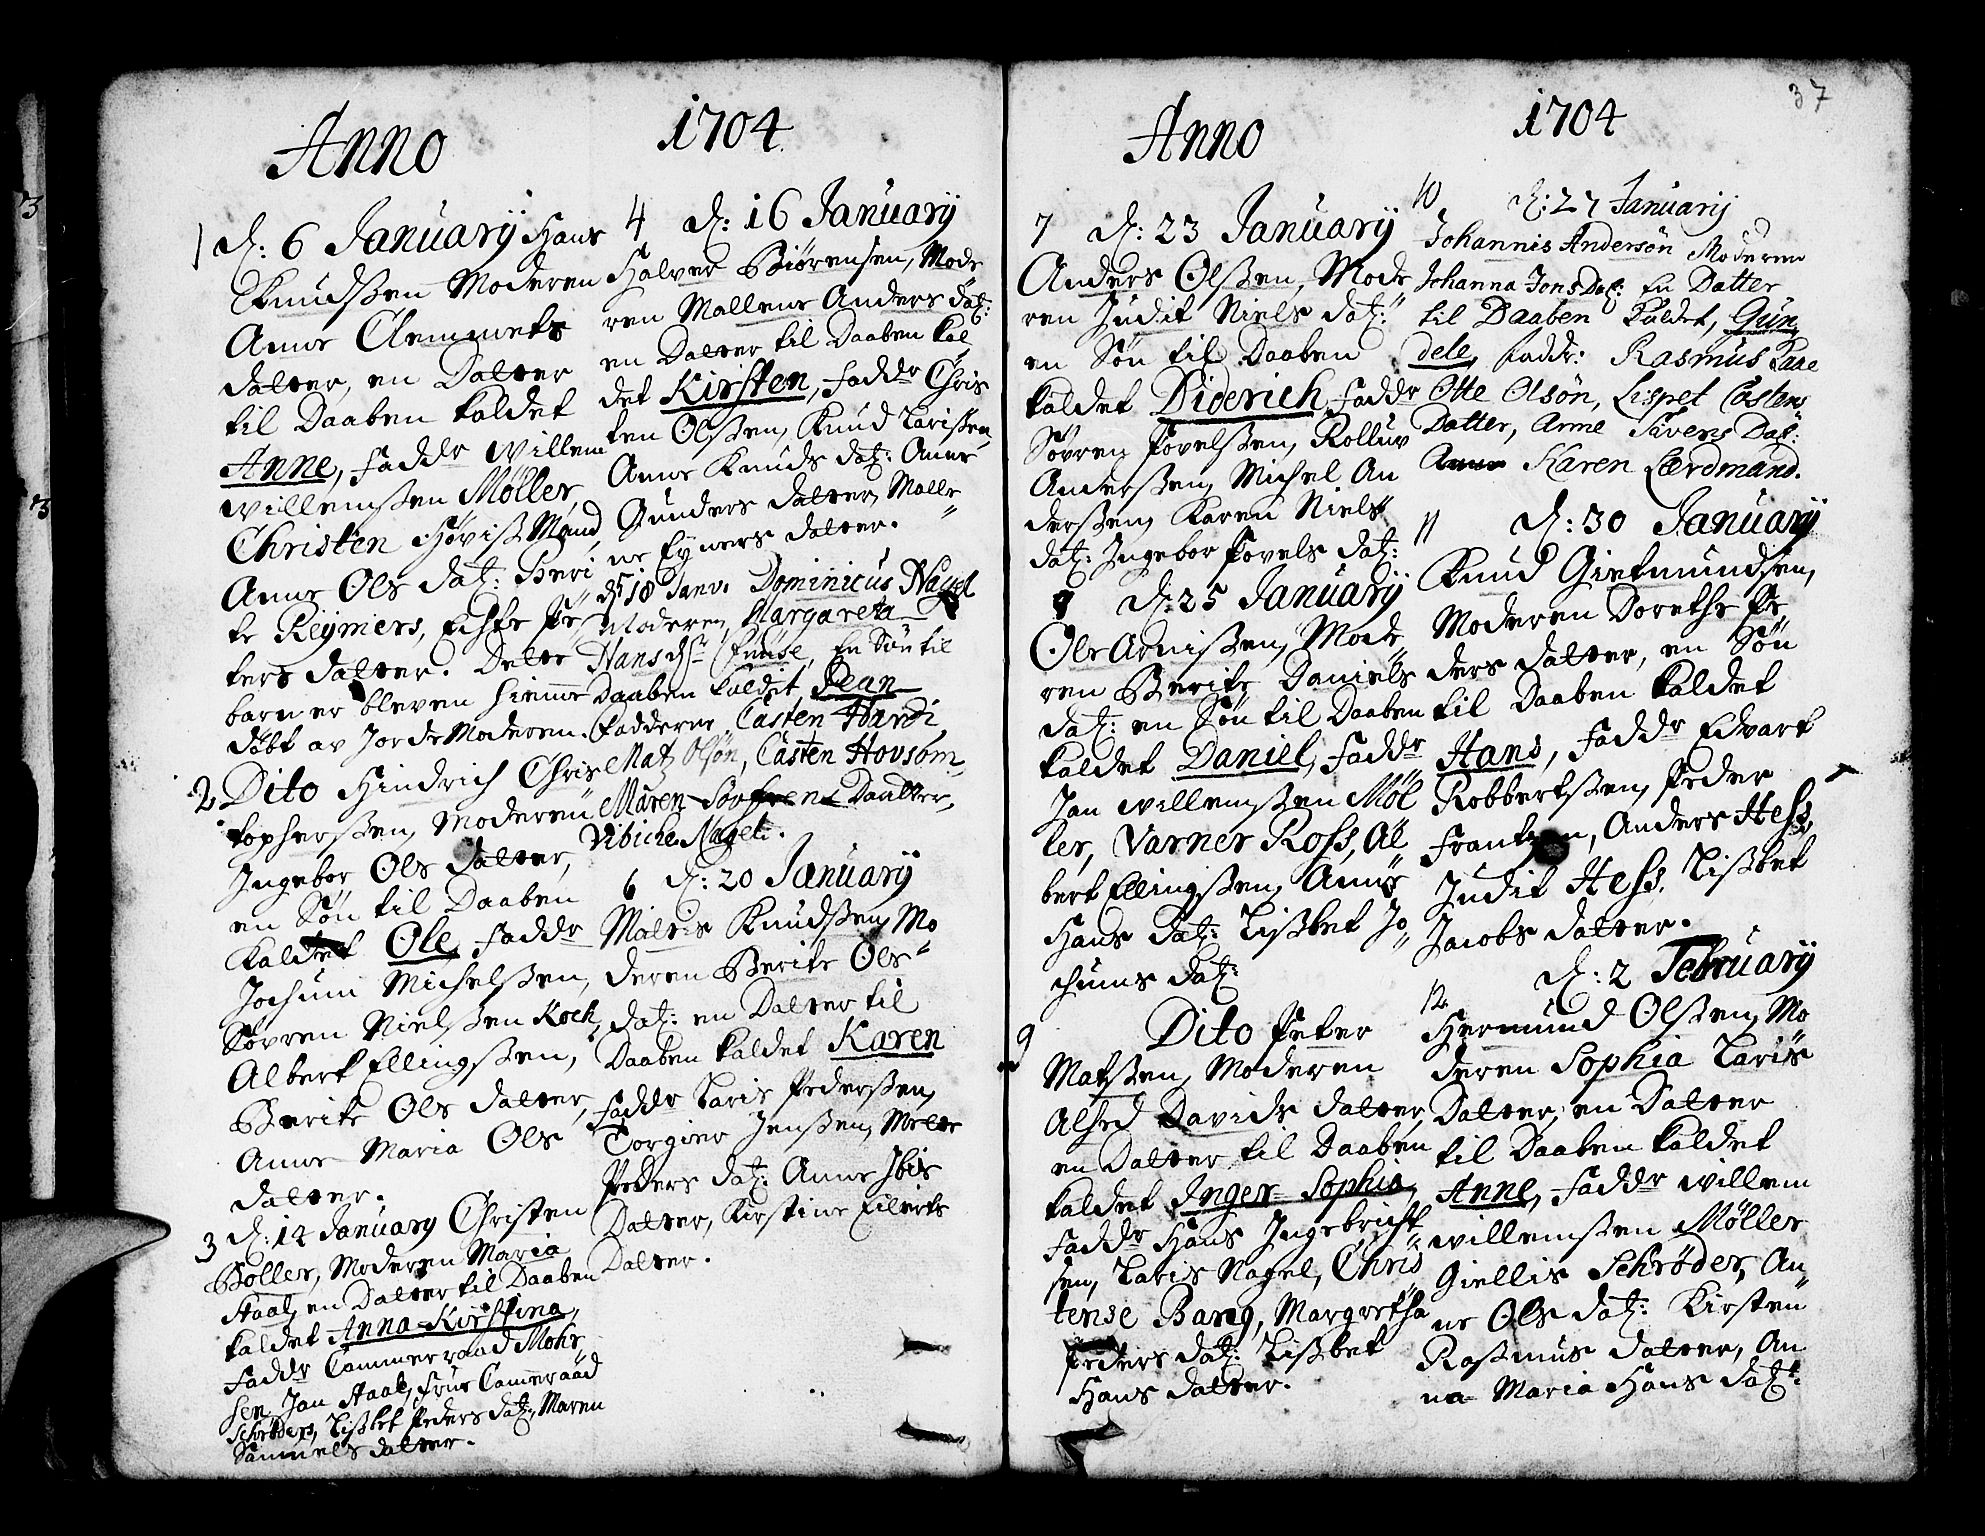 Anno 1704
1 d: 6 Januarÿ Hans
Knudßen Moderen
Anne Clemmets
datter, en Datter
til Daaben kaldet
Anne, Faddr Willem
Willemßen Møller,
Christen Høviß Mand,
Anne Ols dat: Beri
te Reÿmers, Pe
ters datter. Dette
barn er bleven hiemme
døbt av JordeModeren.
2 Dito Hindrich Chris
topherßen, Moderen
Ingebor Ols datter,
en Søn til Daaben
kaldet Ole, Faddr
Jochum Michelßen,
Søvren Nielßen Kock,
Albert Ellingßen,
Berite Ols datter,
Anne Maria Ols
datter.
3 d: 12 January Christen
Böller, Moderen Maria
Staal, en Datter til Daaben
kaldet Anna Kirstina,
Faddr Cammerraad Mohr,
sen, Jan Staal, Frue Cameraad
Schröders, Lißbet Peders dat: Maren
Samuels datter.
4 d: 16 Januarÿ
Halver Biørensen, Mode
ren Mallene Anders dat:
en Datter til Daaben kal
det Kirsten, Faddr Chris
ten Olßen, Knud Larißen,
Anne Knuds dat: Anne
Gunders datter, Malle
ne Eyners datter.
d 18 Janv. Dominicus Nagel
Moderen, Margareta
Hans dr: En Søn til
Daaben kaldet, Jean
Fadderne, Casten Hansi,
Matz Olsøn, Casten Hovsom,
Maren Daatter,
Vibiche Nagel.
6 d: 20 Januarÿ
Malvis Knudßen, Mo
deren Berite Ols
dat: en Datter til
Daaben kaldet Karen
Faddr Laris Pederßen,
Torgier Jenßen, Mette
Peders dat: Anne Ibis
Datter, Kirstine Eilerts
Datter.
37
Anno 1704
7 d: 23 Januarÿ
Anders Olßen, Mode
ren Judit Niels dat:
en Søn til Daaben
kaldet Diderich, Faddr
Søvren Povelßen, Rolluv
Anderßen, Michel An
derßen, Karen Niels
dat: Ingebor Povels dat:
8 d: 25 Januarÿ
Ole Arnißen, Mode
ren Berite Daniels
dat: en Søn til Daaben
kaldet Daniel, Faddr
Jan Willemßen Møl
ler, Varner Ross, Al
bert Ellingßen, Anne
Hans dat: Lißbet Jo
chums dat:
9 Dito Peter
Matzßen, Moderen
Alhed Davids datter,
en Datter til Daaben
kaldet Inger Sophia,
Faddr Hans Ingebricht
sen, Laris Nagel, Chris
tense Bang, Margretha
Peders dat: Lißbet
Hans datter.
10 d: 27 Januarij
Johannis Andersøn Moderen
Johanna Jons Dat: En Datter
til Daaben kaldet, Gun
dele, Faddr: Rasmus Paae
Otte Olsøn, Lispet Castens
Datter, Anne Siverts Dat:
Karen Lærdmand.
11 d: 30 Januarÿ
Knud Gietmundsen,
Moderen Dorethe Pe
ders datter, en Søn
til Daaben kaldet
Hans, Faddr Edvart
Robbertßen, Peder
Frantzen, Anders Hess,
Judit Hess, Lißbet
Jacobs datter.
d: 2 Februarÿ
12 Hermund Olßen, Mo
deren Sophia Laris
Datter, en Datter
til Daaben kaldet
Anne, Faddr Willem
Willemßen Møller
Giellis Schrøder, An
ne Ols dat: Kirsten
Raßmus datter, An
na Maria Hans dat: